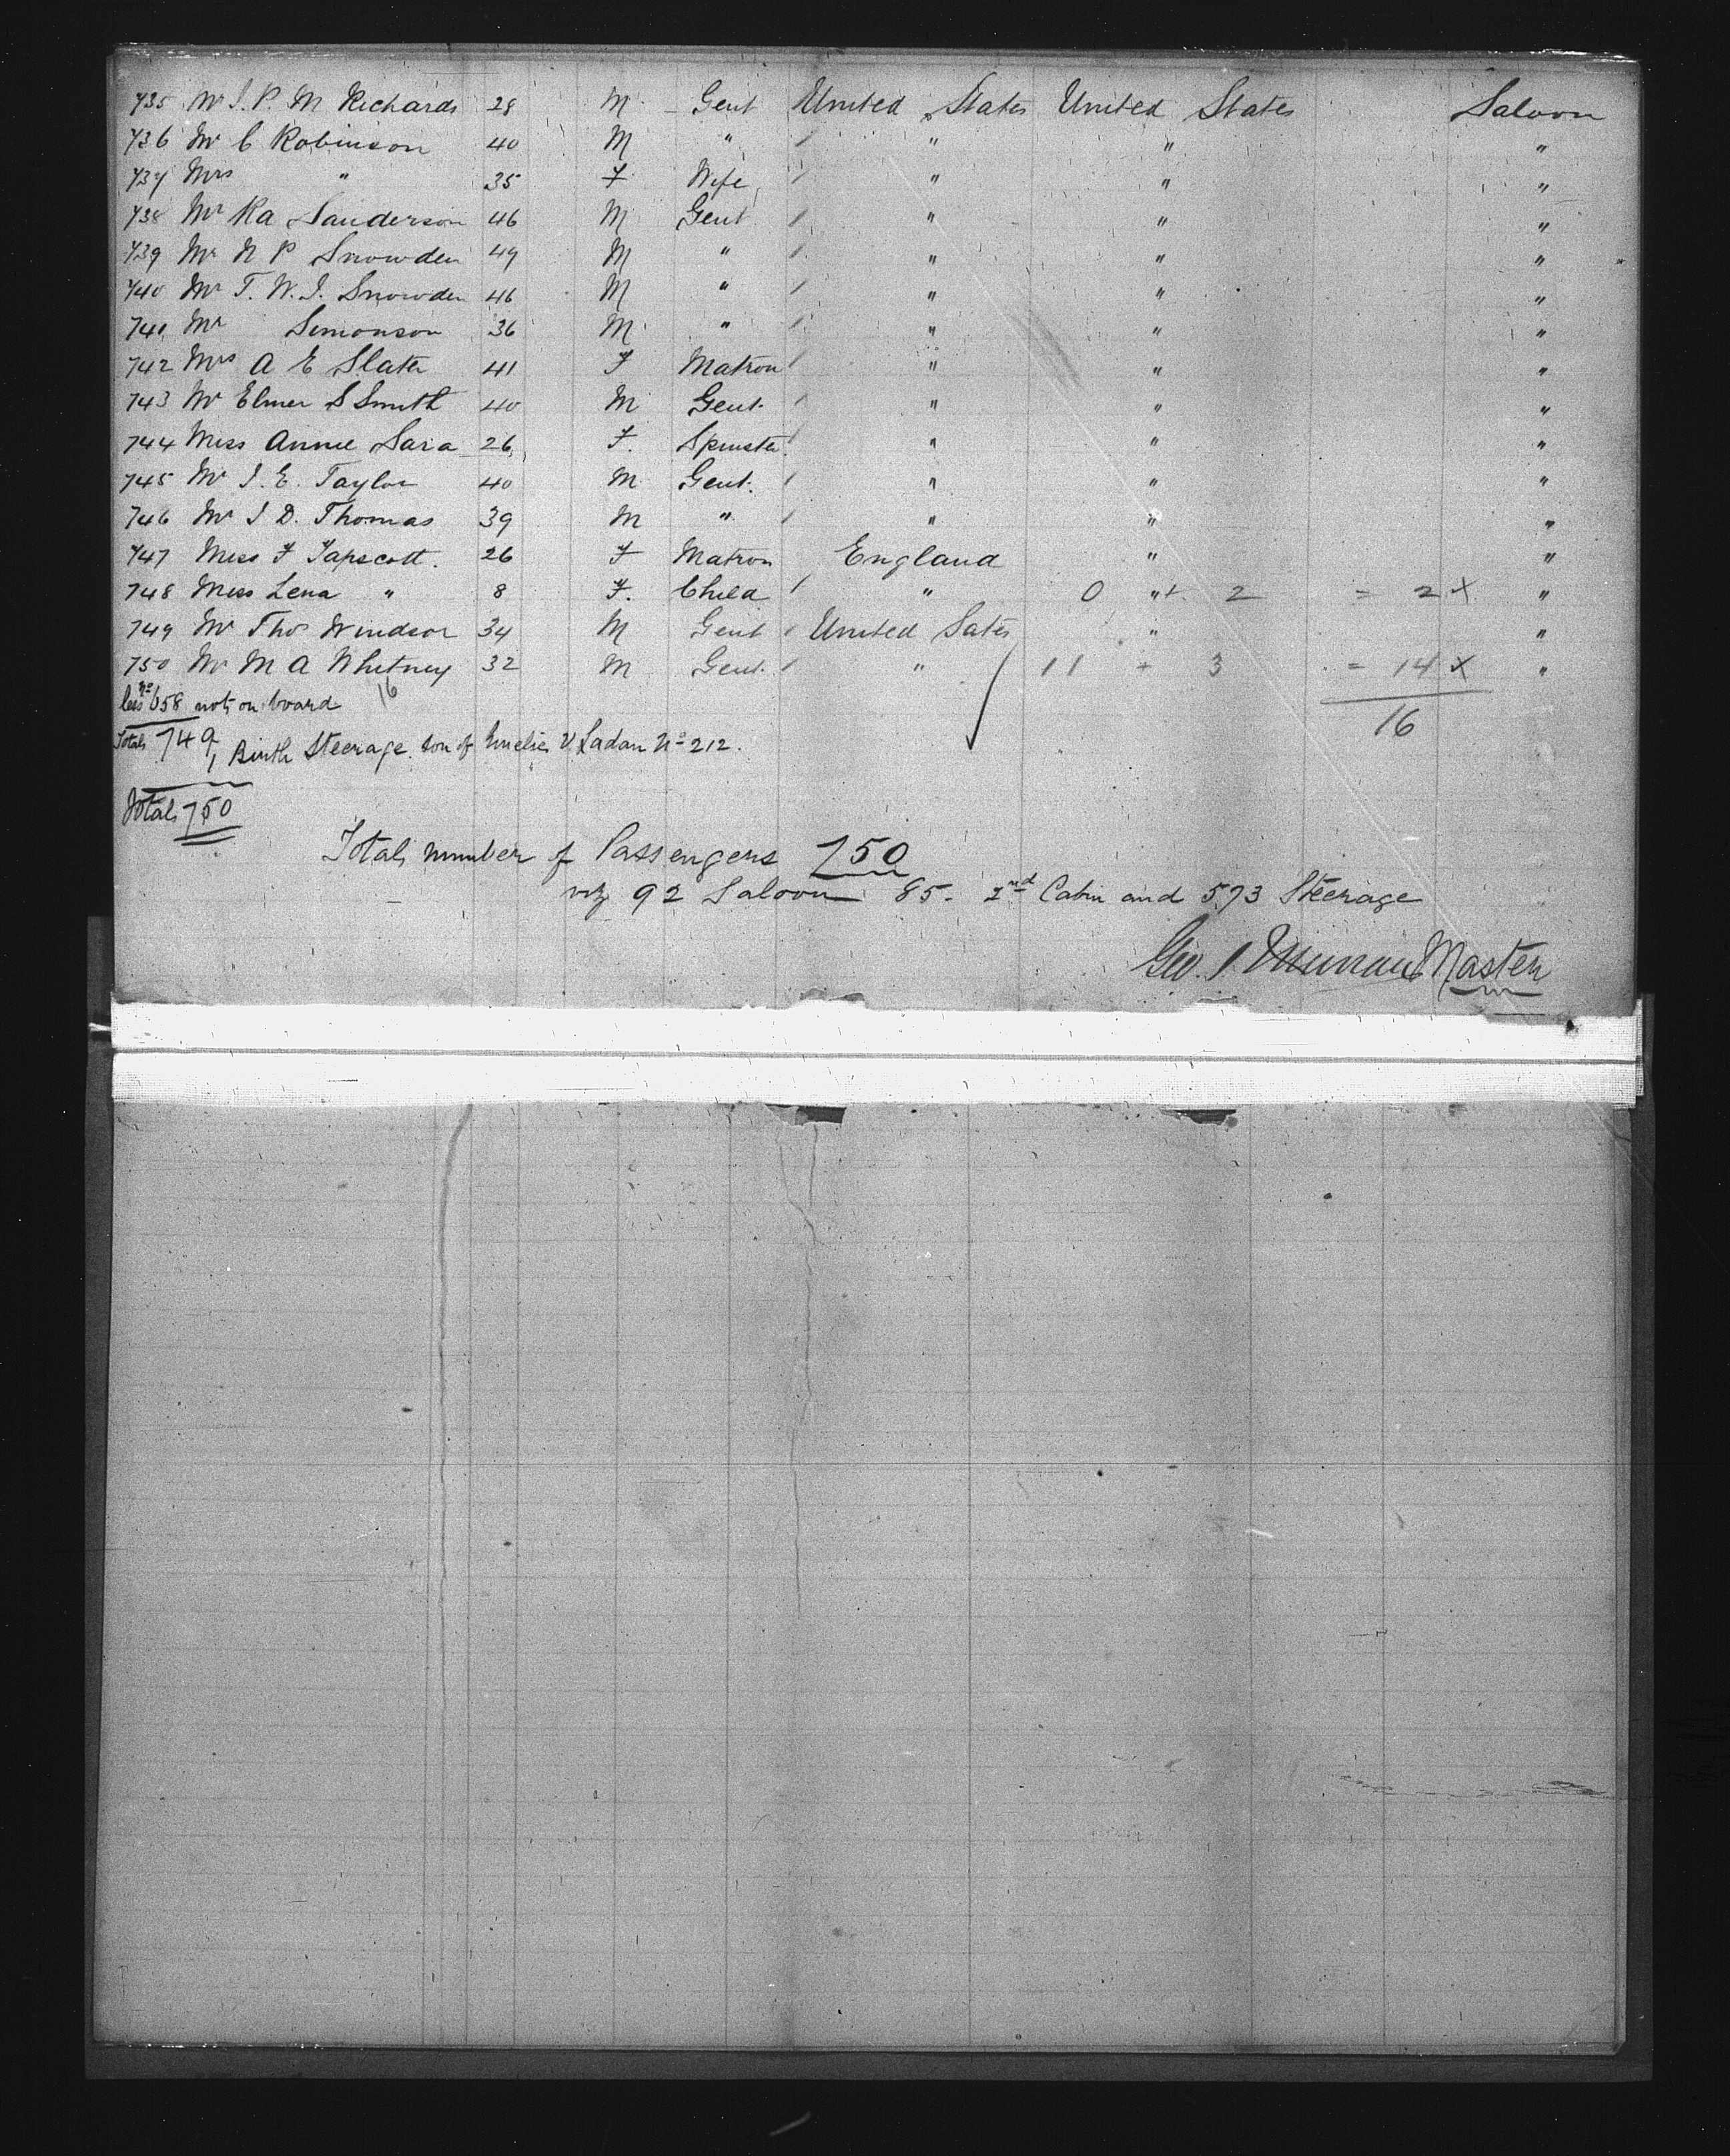 735 Mr J. P. M Richards 28 M Gent United States United States Saloon
736 Mr C Robinson 40 M " " " "
737 Mrs " 35 F Wife " " "
738 Mr Ra Sanderson 46 M Gent " " "
739 Mr N P Snowden 49 M " " " "
740 Mr T. W. J. Snowden 46 M " " " "
741 Mr Simonson 36 M " " " "
742 Mrs A E Slater 41 F Matron " " "
743 Mr Elmer S Smith 40 M Gent. " " "
744 Miss Annie Sara 26 F. Spinster. " " "
745 Mr J. E. Taylor 40 M Gent. " " "
746 Mr J D. Thomas 39 M " " " "
747 Miss F Tapscott. 26 F Matron England " "
748 Miss Lena " 8 F. Child " 0 " + 2 = 2 x "
749 Mr Thos Windsor 34 M Gent United Sates " "
750 Mr M A Whitney 32 M Gent. " 11 + 3 = 14 x "
less No 658 not on board 16
16
Total 749, Birth Steerage son of V Ladan No 212.
Total 750
Total number of Passengers 750
viz 92 Saloon 85 - 2nd Cabin and 573 Steerage
Geo. J. Murray Master